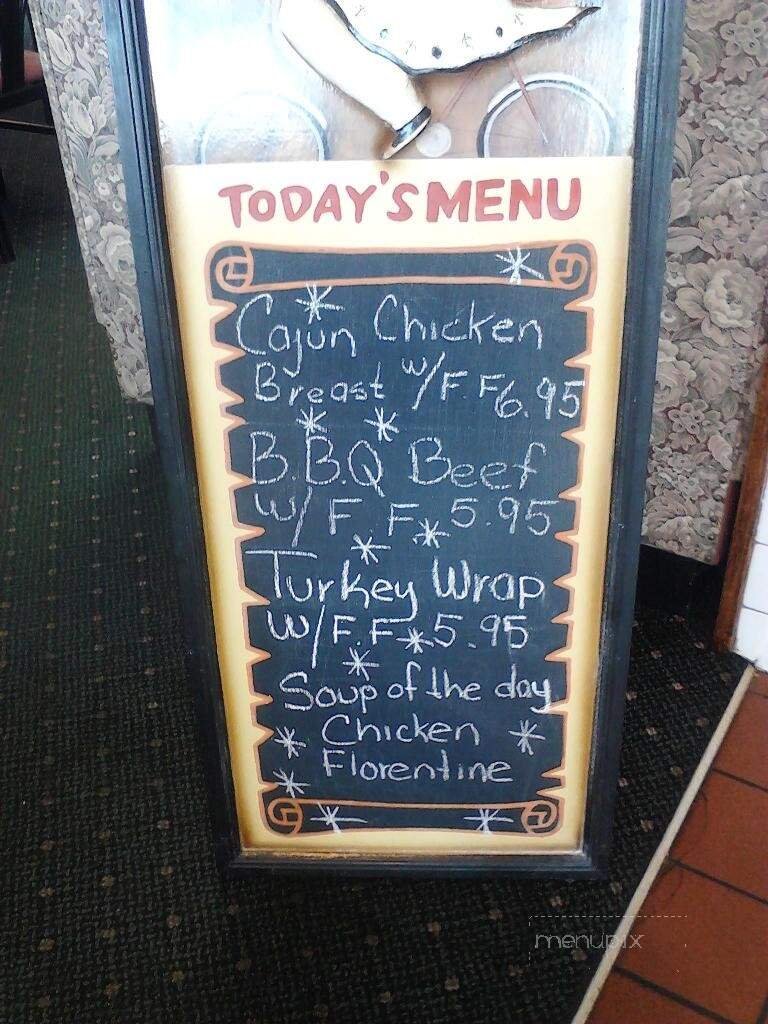 TODAY'S MENU
Cajun Chicken
Breast w/ F.F 6.95
B.B.Q Beef
w/ F.F. 5.95
Turkey Wrap
w/ F.F. 5.95
Soup of the day
Chicken
Florentine
menupix